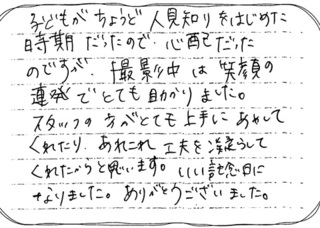 子どもがちょうど人見知りをはじめた
時期だったので、心配だった
のですが、撮影中は笑顔の
連発でとても助かりました。
スタッフの方がとても上手にあやして
くれたり、あれこれ工夫を凝らして
くれたからと思います。いい記念日に
なりました。ありがとうございました。